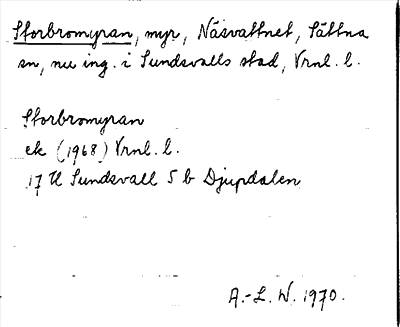 Storbromyran, myr, Näsvattnet, Sättna
sn, nu ing. i Sundsvalls stad, Vrnl. l.
Storbromyran
ek (1968) Vrnl. l.
17 H Sundsvall 5 b Djupdalen
A.-L. W. 1970.